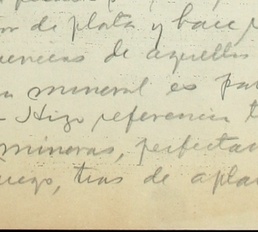 de plata y hace
de aquellos
mineral es pa
Hizo referencia t
mineros, perfecta
uego, tras de apla